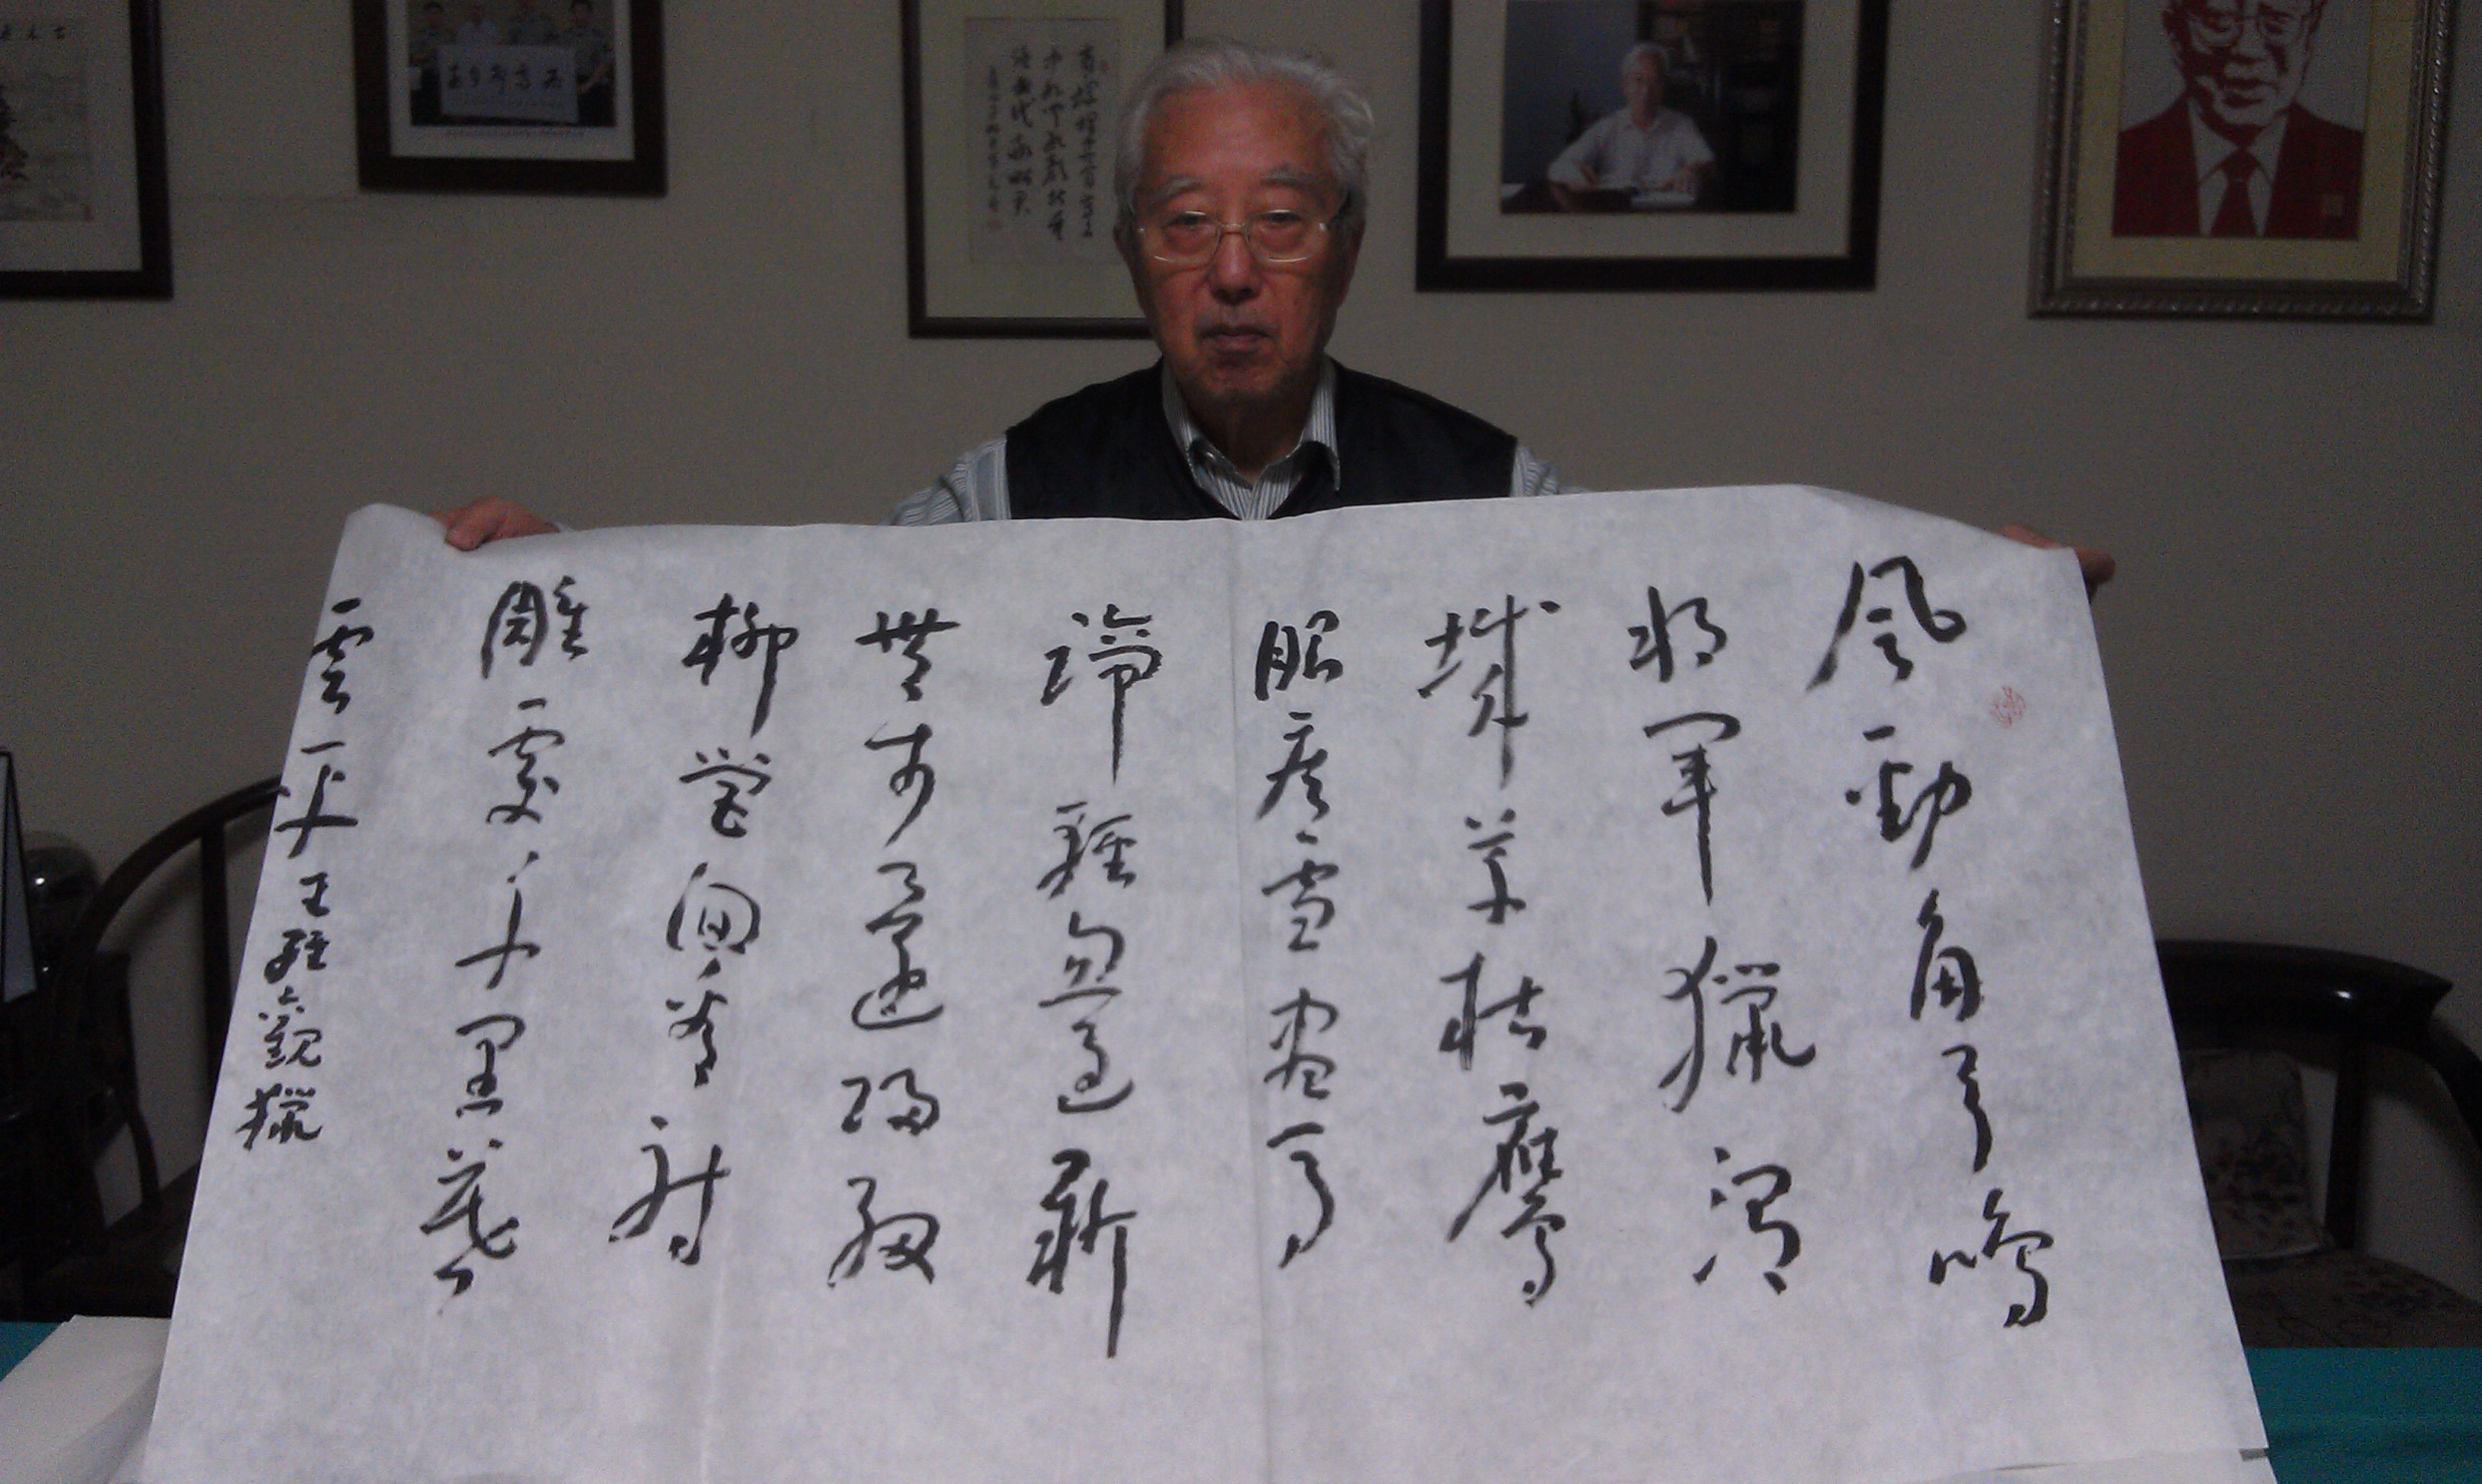 風勁角弓鳴
将軍獵渭
城草枯鷹
眼疾雪盡馬
蹄輕忽過新
豐市還歸細
柳營回看射
雕處千里暮
雲平 王維觀獵